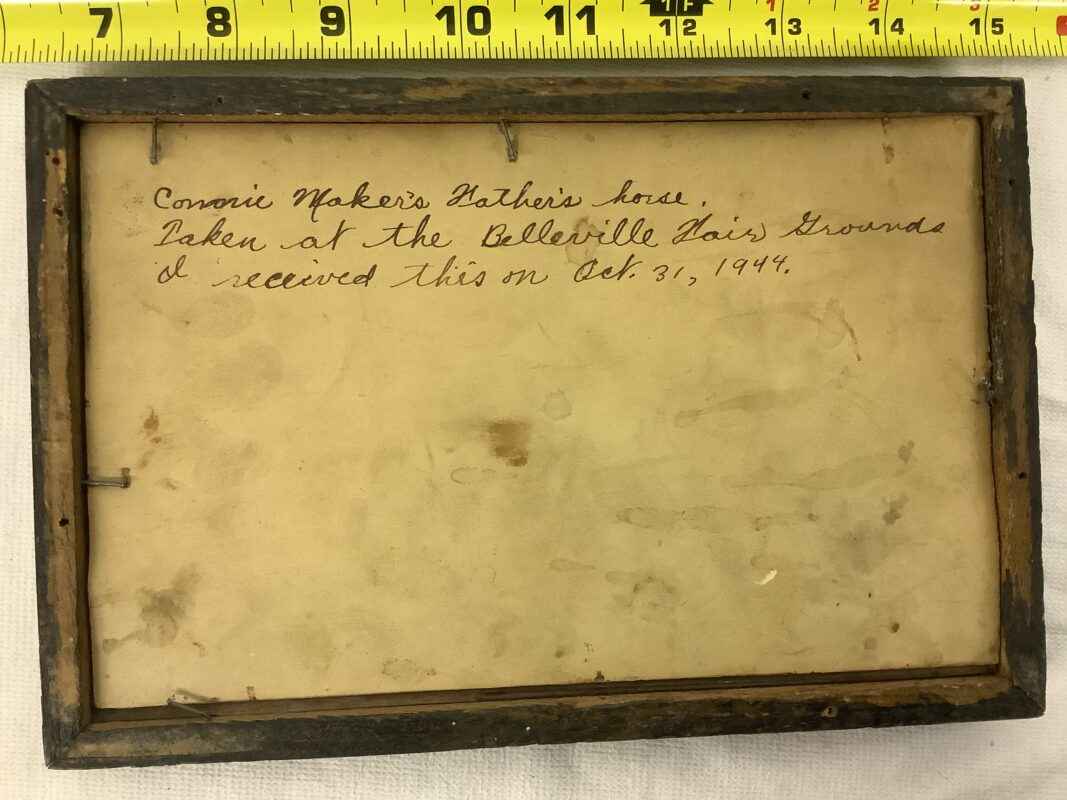 7 8 9 10 11 1F 1 2 3
12 13 14 15
Connie Maker's Father's horse.
Taken at the Belleville Fair Grounds
I received this on Oct. 31, 1944.